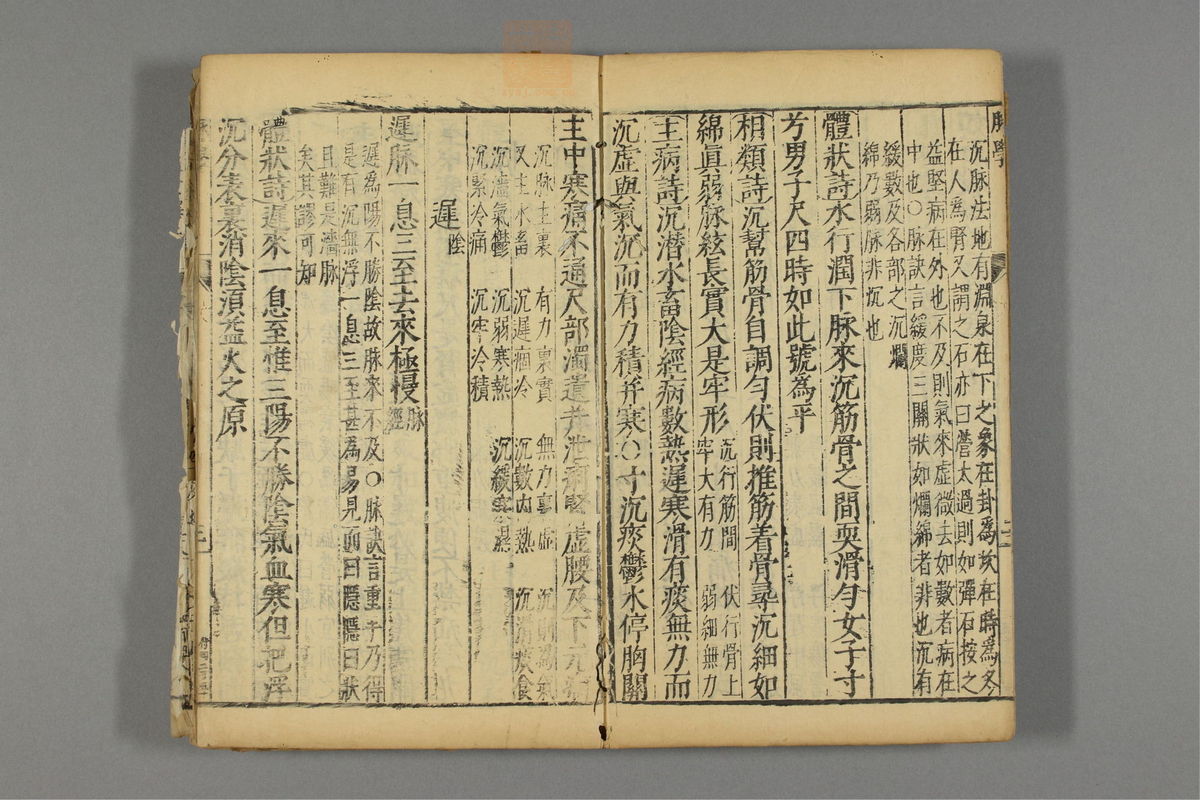 脉學
沉脉法地有淵泉在下之象在卦爲坎在時為冬
在人爲腎又謂之石亦曰營太過則如彈石按之
益堅病在外也不及則氣來虛微去如數者病在
中也○脉訣言緩度三關狀如爛綿者非也沉有
緩數及各部之沉爛
綿乃弱脉非沉也
體狀詩水行潤下脉來沉筋骨之間耎滑勻女子寸
兮男子尺四時如此號為平
相類詩沉幫筋骨自調勻伏則推筋着骨尋沉細如
綿眞弱脉弦長實大是牢形
沉行筋間 伏行骨上
牢大有力 弱細無力
主病詩沉潜水畜陰經病數熱遲寒滑有痰無力而
沉虛與氣沉而有力積并寒○寸沉痰鬱水停胸關
主中寒痛不通尺部濁遺并泄痢腎虛腰及下元
沉脉主裏 有力裏實 無力裏虛 沉則為氣
又主水畜 沉遲痼冷 沉數内熱 沉滑痰食
沉濇氣鬱 沉弱寒熱 沉緩寒濕
沉緊冷痛 沉牢冷積
遲陰
遲脉一息三至去來極慢脉經
遲爲陽不勝陰故脉來不及○脉訣言重手乃得
是有沉無浮一息三至甚為易見而曰隱隱曰狀
且難是濇脉
矣其謬可知
體狀詩遲來一息至惟三陽不勝陰氣血寒但把浮
沉分表裏消陰須益火之原